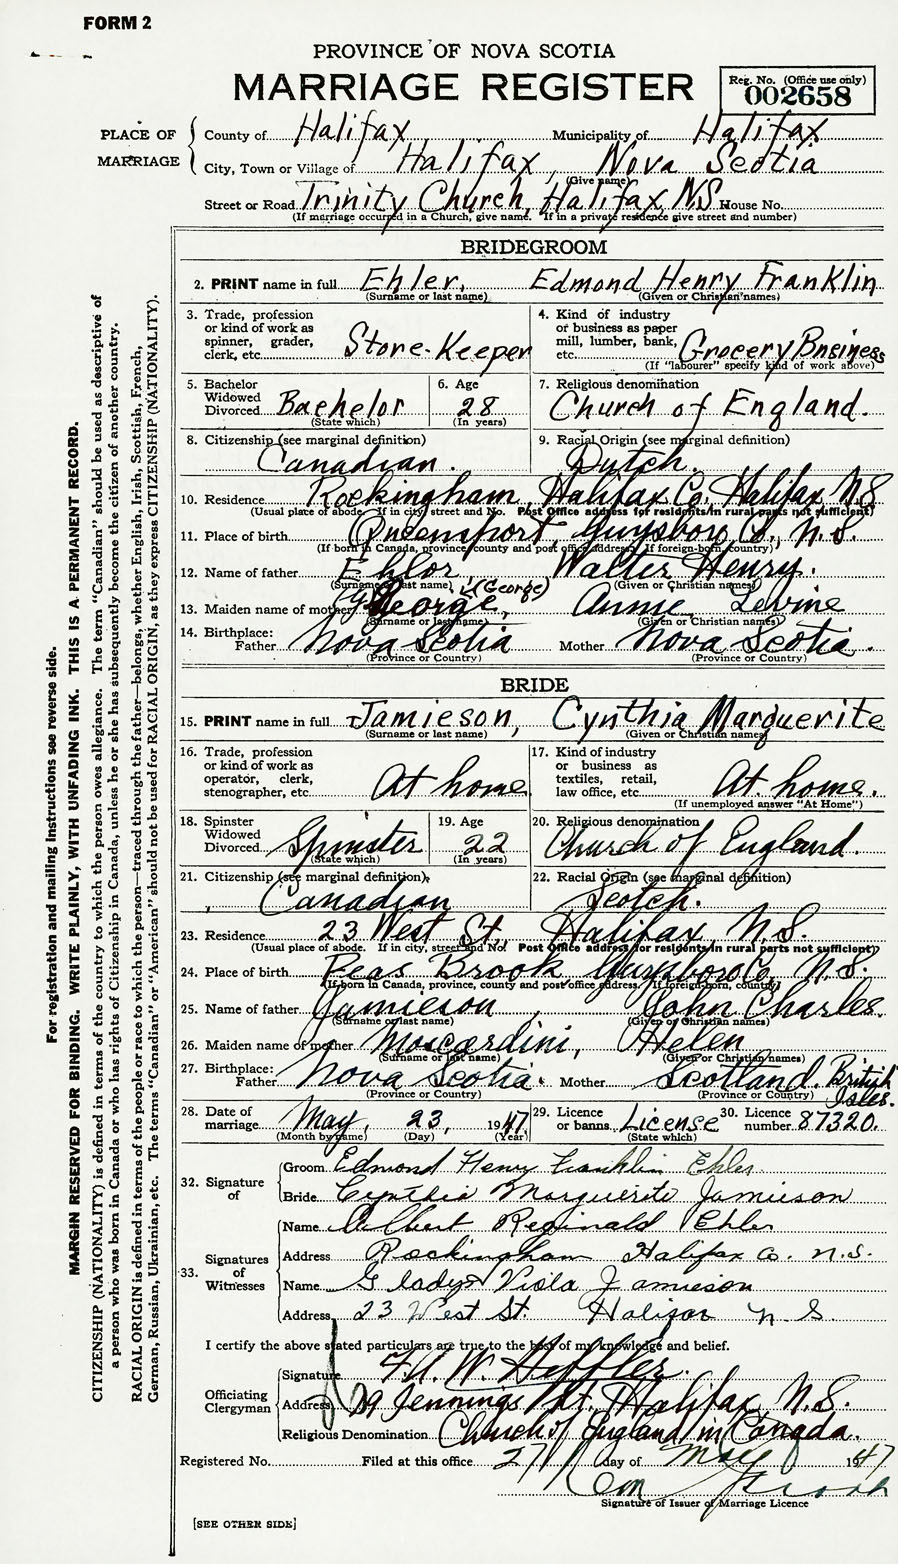 FORM 2
PROVINCE OF NOVA SCOTIA
MARRIAGE REGISTER
Reg. No. (Office use only)
002658
PLACE OF MARRIAGE
County of Halifax Municipality of Halifax
City, Town or Village of Halifax, Nova Scotia
(Give name)
Street or Road Trinity Church, Halifax, N.S. House No.
(If marriage occurred in a Church, give name. If in a private residence give street and number)
BRIDEGROOM
2. PRINT name in full Ehler, Edmond Henry Franklin
(Surname or last name) (Given or Christian names)
3. Trade, profession or kind of work as spinner, grader, clerk, etc. Store-Keeper
4. Kind of industry or business as paper mill, lumber, bank, etc. Grocery Business
(If "labourer" specify kind of work above)
5. Bachelor Widowed Divorced Bachelor
(State which)
6. Age 28
(In years)
7. Religious denomination
Church of England.
8. Citizenship (see marginal definition)
Canadian.
9. Racial Origin (see marginal definition)
Dutch.
10. Residence Rockingham, Halifax Co. Halifax N.S
(Usual place of abode. If in city, street and No. Post Office address for residents in rural parts not sufficient)
11. Place of birth Queensport, Guysboro Co., N.S.
(If born in Canada, province, county and post office address. If foreign-born, country)
12. Name of father Ehlor, Walter Henry.
(Surname or last name) (George) (Given or Christian names)
13. Maiden name of mother George, Annie Levine
(Surname or last name) (Given or Christian names)
14. Birthplace: Father Nova Scotia Mother Nova Scotia.
(Province or Country) (Province or Country)
BRIDE
15. PRINT name in full Jamieson, Cynthia Marguerite
(Surname or last name) (Given or Christian names)
16. Trade, profession or kind of work as operator, clerk, stenographer, etc. At home
17. Kind of industry or business as textiles, retail, law office, etc. At home.
(If unemployed answer "At Home")
18. Spinster Widowed Divorced Spinster
(State which)
19. Age 22
(In years)
20. Religious denomination
Church of England.
21. Citizenship (see marginal definition)
Canadian
22. Racial Origin (see marginal definition)
Scotch.
23. Residence 23 West St., Halifax, N.S.
(Usual place of abode. If in city, street and No. Post Office address for residents in rural parts not sufficient)
24. Place of birth Peas Brook Guysboro Co, N.S.
(If born in Canada, province, county and post office address. If foreign-born, country)
25. Name of father Jamieson, John Charles.
(Surname or last name) (Given or Christian names)
26. Maiden name of mother Moscardini, Helen
(Surname or last name) (Given or Christian names)
27. Birthplace: Father Nova Scotia. Mother Scotland. British Isles.
(Province or Country) (Province or Country)
28. Date of marriage May, 23, 1947
(Month by name) (Day) (Year)
29. Licence or banns License
(State which)
30. Licence number 87320.
32. Signature of
Groom Edmond Henry Franklin Ehler
Bride Cynthia Marguerite Jamieson
33. Signatures of Witnesses
Name Albert Reginald Ehler
Address Rockingham Halifax Co. N.S.
Name Gladys Viola Jamieson
Address 23 West St. Halifax N S.
I certify the above stated particulars are true to the best of my knowledge and belief.
Officiating Clergyman
Signature
Address 29 Jennings St. Halifax, N.S.
Religious Denomination Church of England in Canada.
Registered No. Filed at this office 27 day of May 1947
Signature of Issuer of Marriage Licence
[SEE OTHER SIDE]
For registration and mailing instructions see reverse side.
MARGIN RESERVED FOR BINDING. WRITE PLAINLY, WITH UNFADING INK. THIS IS A PERMANENT RECORD.
CITIZENSHIP (NATIONALITY) is defined in terms of the country to which the person owes allegiance. The term "Canadian" should be used as descriptive of
a person who was born in Canada or who has rights of Citizenship in Canada, unless he or she has subsequently become the citizen of another country.
RACIAL ORIGIN is defined in terms of the people or race to which the person—traced through the father—belongs, whether English, Irish, Scottish, French,
German, Russian, Ukrainian, etc. The terms "Canadian" or "American" should not be used for RACIAL ORIGIN, as they express CITIZENSHIP (NATIONALITY).